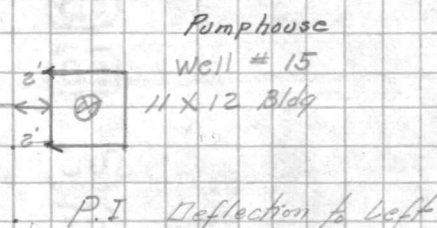 Pumphouse
2' Well # 15
11 X 12 Bldg
2'
P.I Deflection to Left